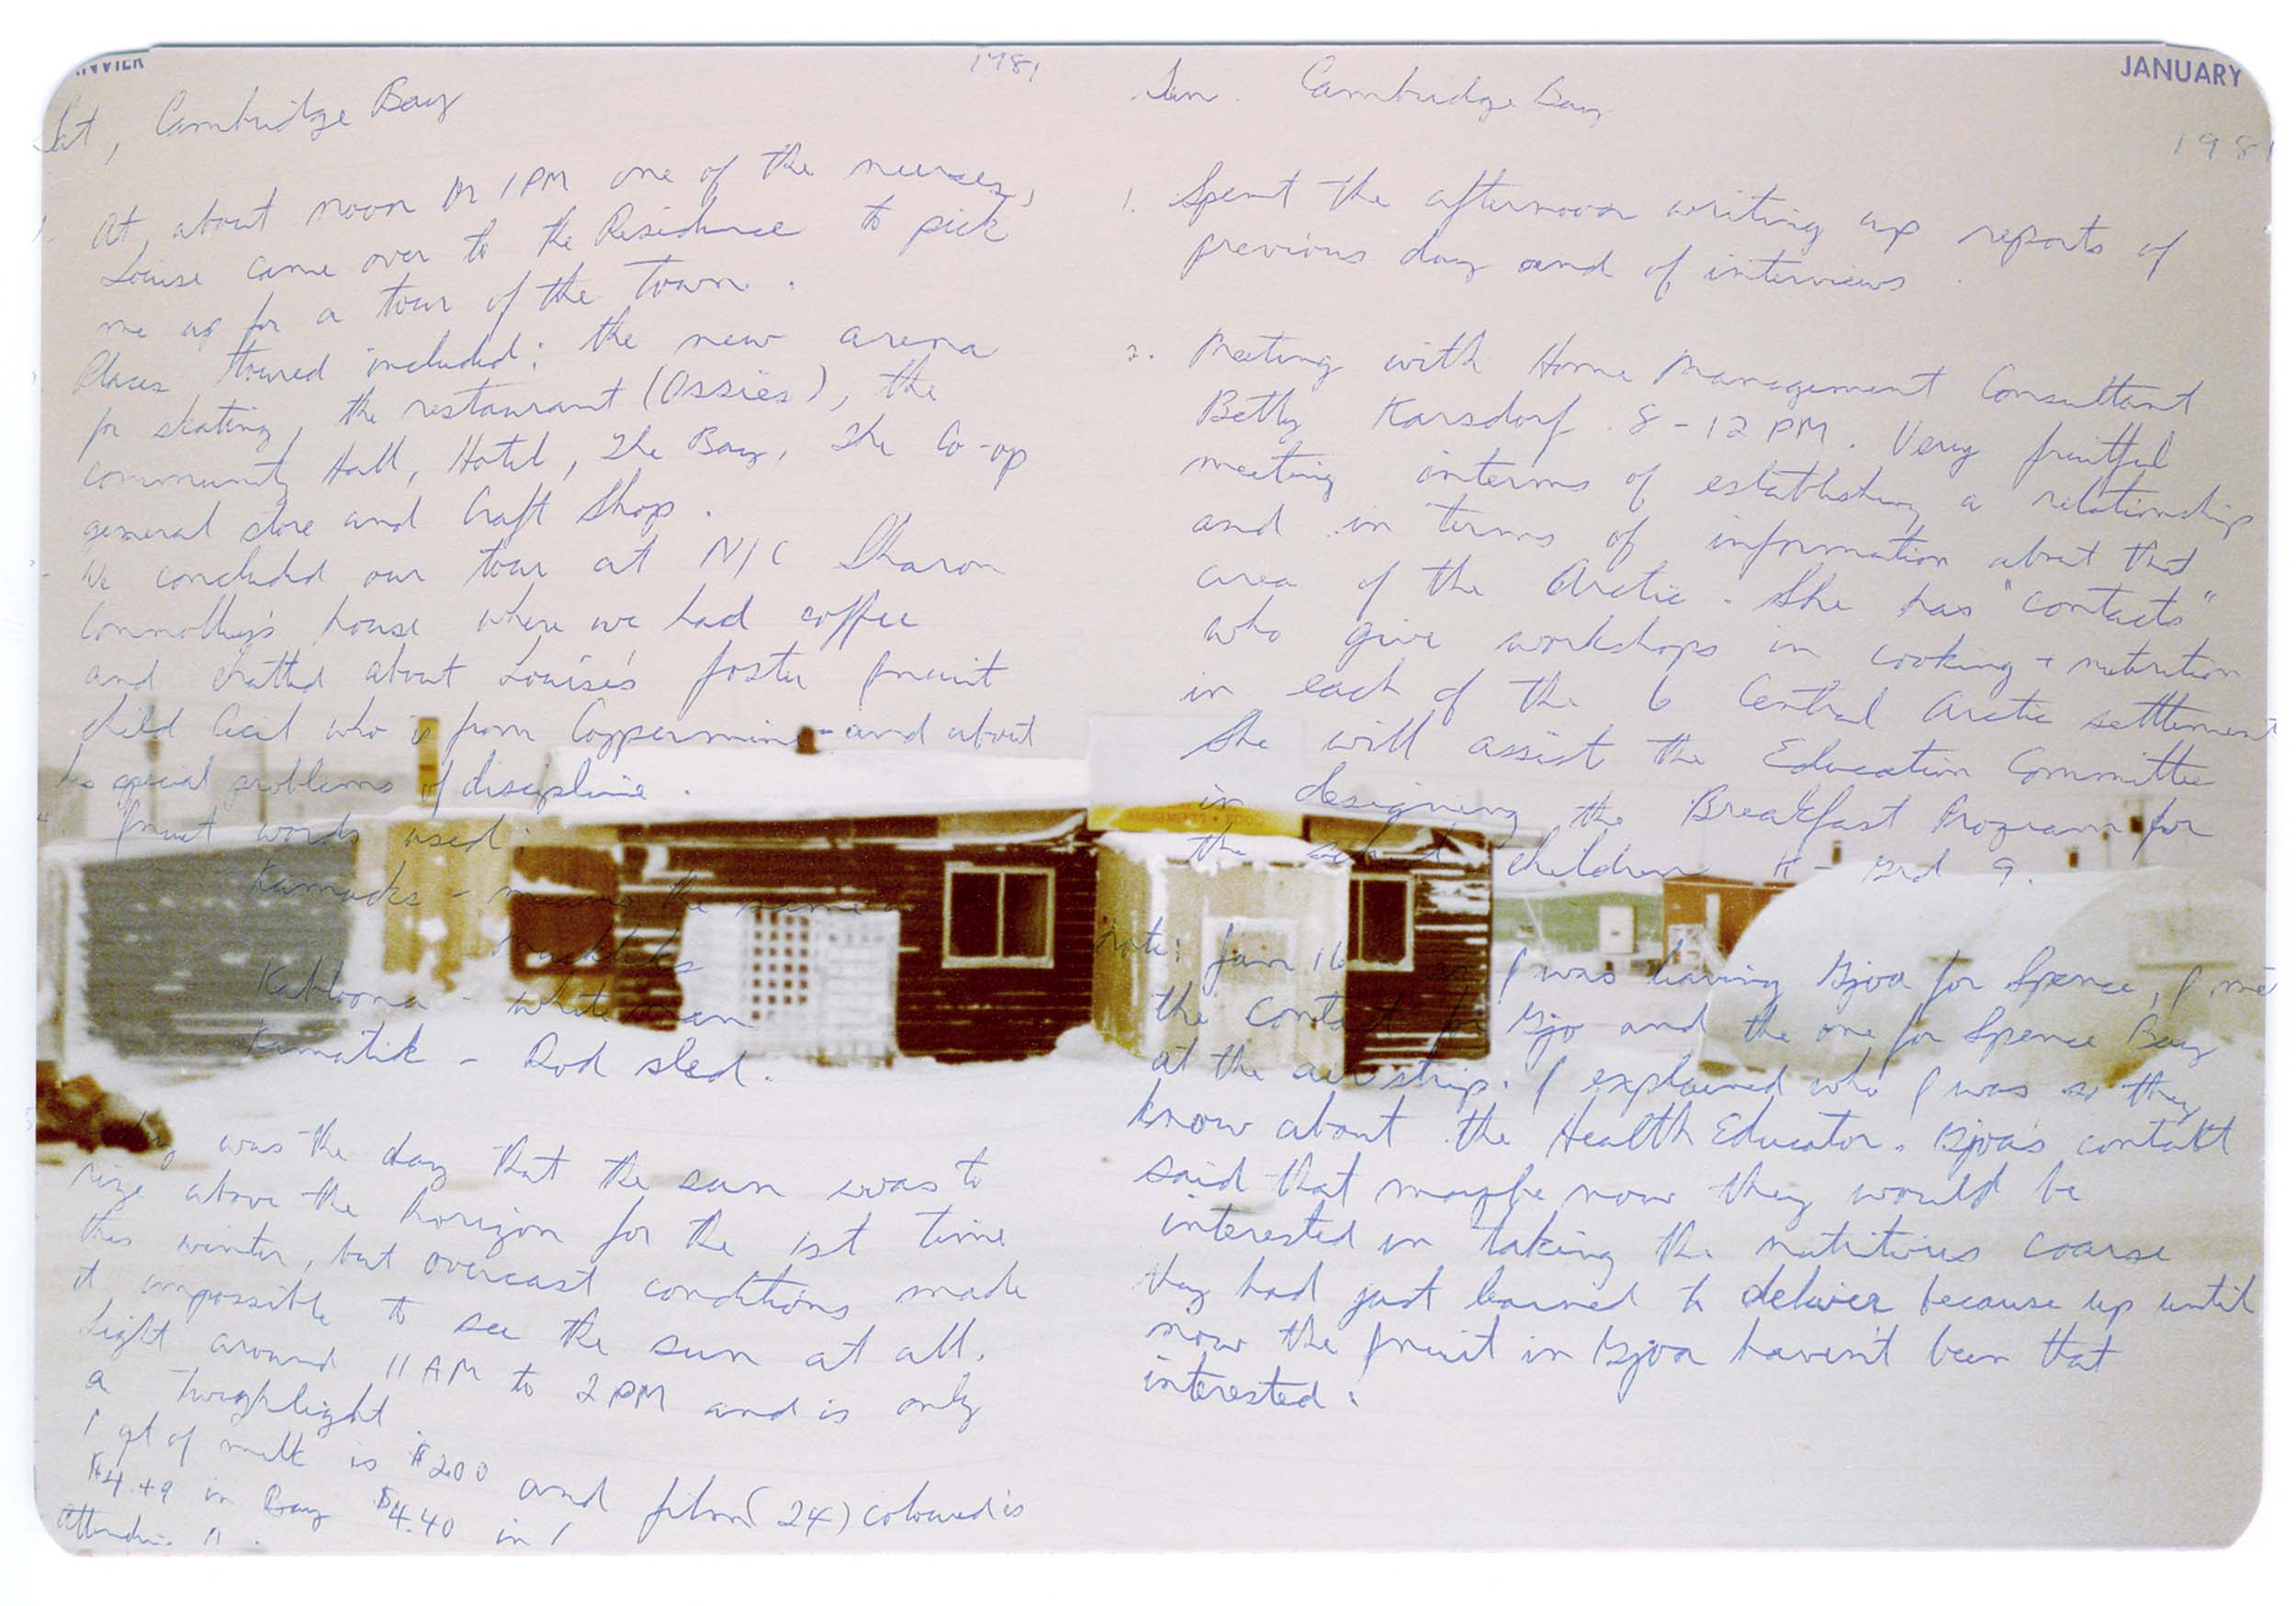 NVIER
1981
Sat, Cambridge Bay
1. At about noon or 1PM one of the nurses,
Louise came over to the Residence to pick
me up for a tour of the town.
Places toured included: the new arena
for skating, the restaurant (Ossies), the
community Hall, Hotel, The Bay, The Co-op
general store and Craft Shop.
We concluded our tour at N/C Sharon
Connolly's house where we had coffee
and chatted about Louise's foster Inuit
child Cecil who is from Coppermine - and about
his special problems of discipline.
4. Inuit words used:
Kamucks - means the same as
mucklucks
Kabloona - white man
Kamatik - Rod sled.
was the day that the sun was to
rize above the horizon for the 1st time
this winter, but overcast conditions made
it impossible to see the sun at all.
Light around 11 AM to 2 PM and is only
a twighlight
1 qt of milk is $2.00 and film (24) coloured is
$4.49 in Bay $4.40 in
JANUARY
1981
Sun. Cambridge Bay
1. Spent the afternoon writing up reports of
previous day and of interviews.
2. Meeting with Home Management Consultant
Betty Karsdorf. 8-12 PM. Very fruitful
meeting interms of establishing a relationship
and in terms of information about that
area of the Arctic. She has "contacts"
who give workshops in cooking + nutrition
in each of the 6 Central Arctic settlement
She will assist the Education Committee
in designing the Breakfast Program for
the school children K - Grd 9.
note: Jan 16 as I was leaving Gjoa for Spence, I me
the contact for Gjo and the one for Spence Bay
at the air strip. I explained who I was so they
know about the Health Educator. Gjoa's contakt
said that maybe now they would be
interested in taking the nutritious coarse
they had just learned to deliver because up until
now the Inuit in Gjoa haven't been that
interested.